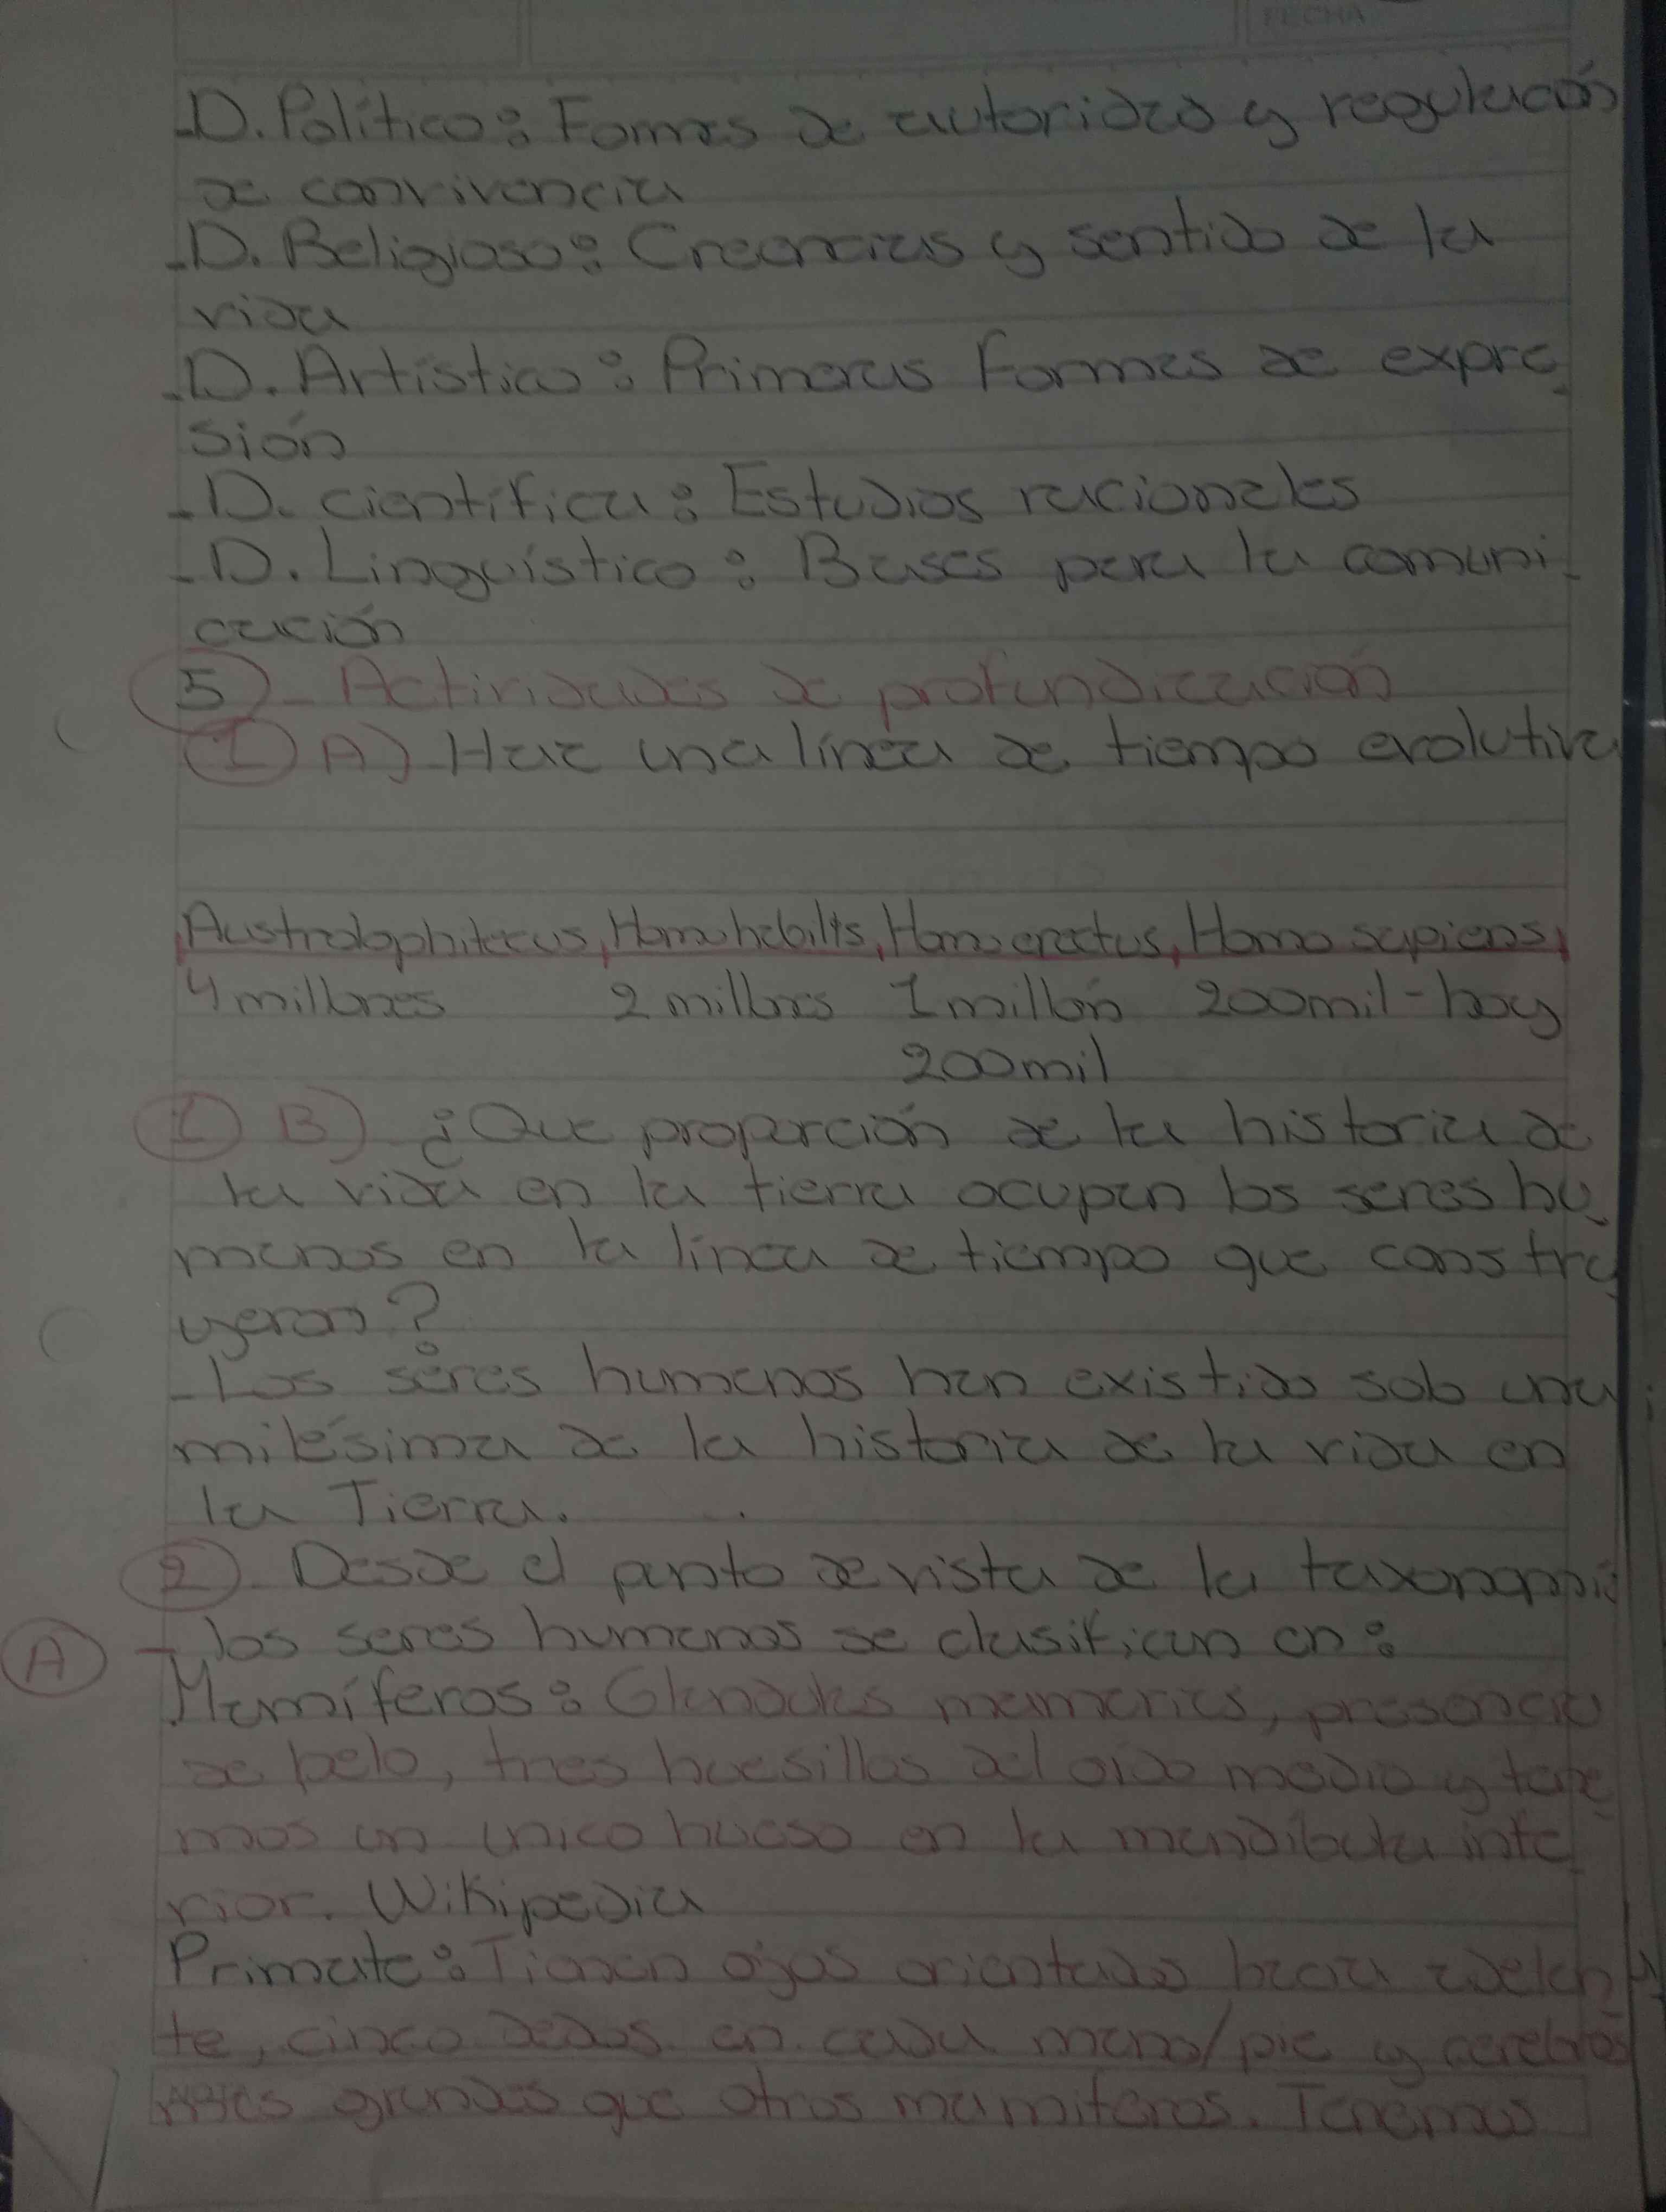 FECHA
-D. Político: Formas de autoridad y regulación
de convivencia
-D. Religioso: Creencias y sentido de la
vida
-D. Artístico: Primeras Formas de expre-
sión
-D. científica: Estudios racionales
-D. Linguístico: Bases para la comuni-
cación
5 - Actividades de profundización
1 A) Haz una línea de tiempo evolutiva
Australophitecus, Homo habilis, Homo erectus, Homo sapiens,
4 millones 2 millones 1 millón 200mil-hoy
200mil
1 B) ¿Que proporción de la historia de
la vida en la tierra ocupan los seres hu-
manos en la línea de tiempo que constru
yeron?
-Los seres humanos han existido solo una
milésima de la historia de la vida en
la Tierra.
2. Desde el punto de vista de la taxonomía
A - los seres humanos se clasifican en:
Mamíferos: Glandulas mamarias, presencia
de pelo, tres huesillos del oido medio y tene-
mos un unico hueso en la mandibula infe
rior. Wikipedia
Primate: Tienen ojos orientados hacia adelan
te, cinco dedos en cada mano/pie y cerebros
más grandes que otros mamiferos. Tenemos